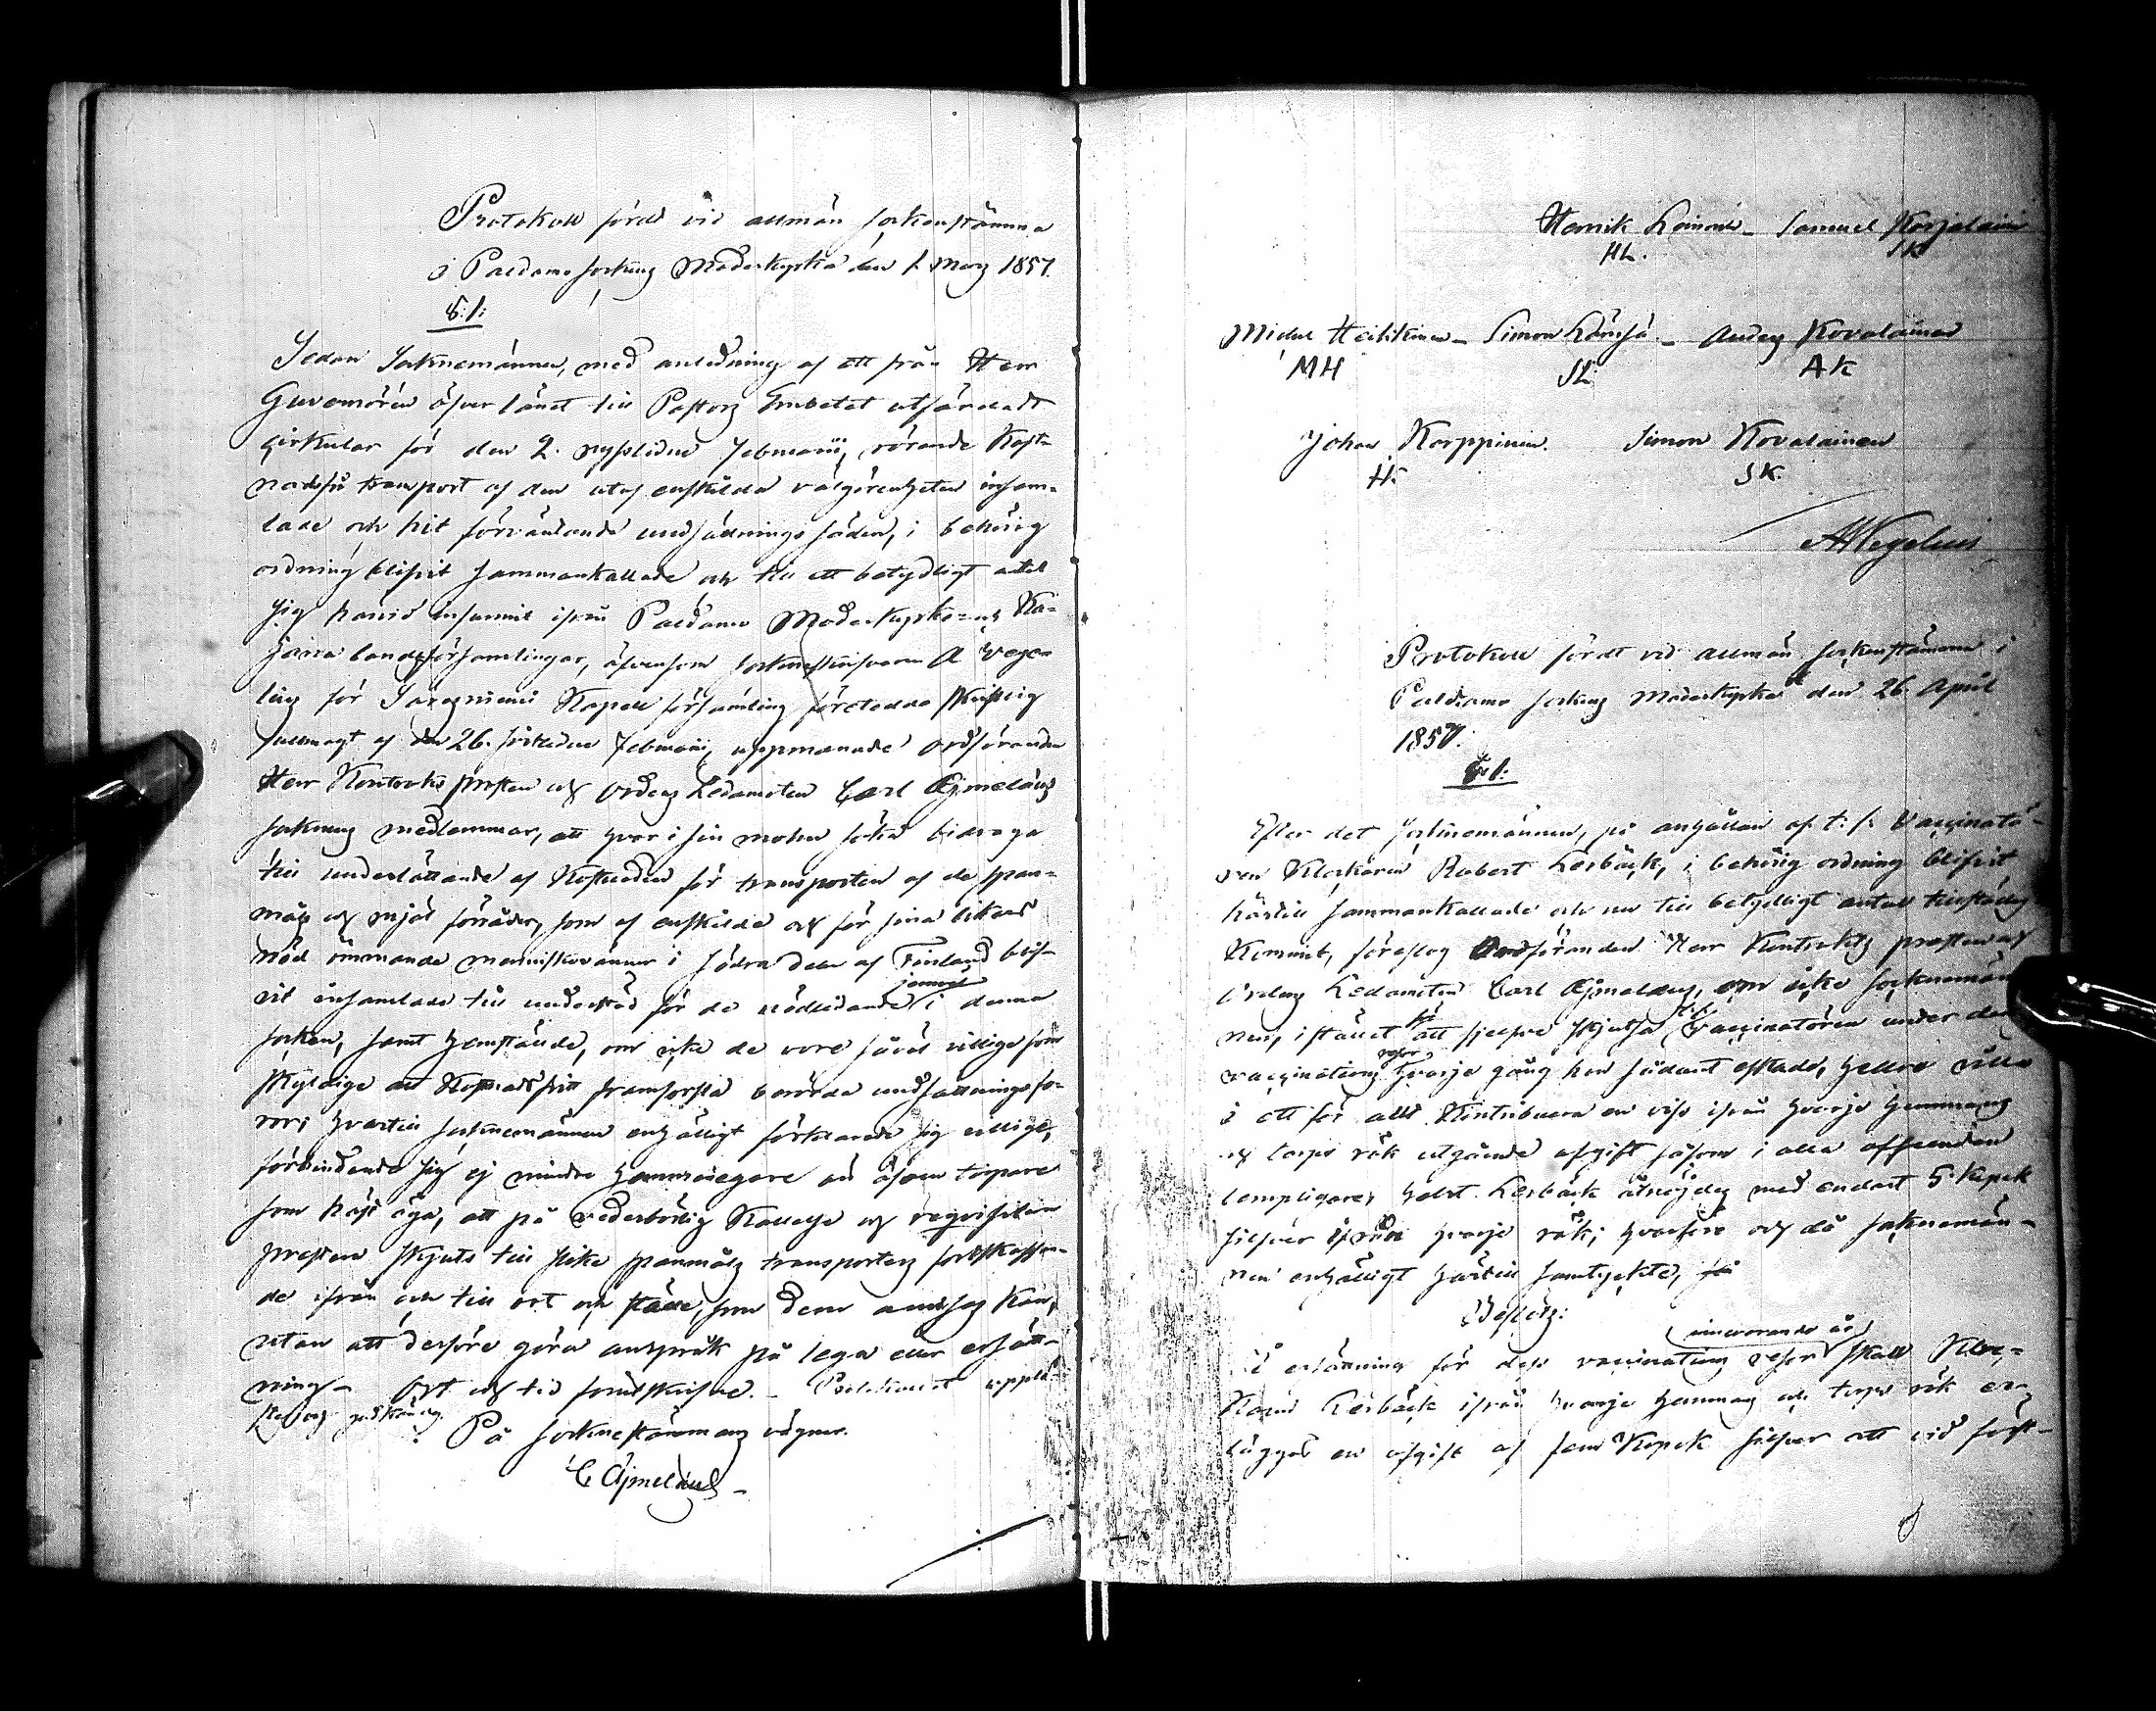 Protokoll fördt vid allmän sockenstämma
i Paldamo sockens Moderkyrka den 1. Mars 1857.
§. 1:
Sedan Socknemännen, med anledning af ett från Herr
Guvernören öfver länet till Pastors Embetet utfärdadt
cirkulär för den 2. nyssledne Februarii, rörande kost-
nadsfri transport af den utaf enskilda välgörenheten insam-
lade och hit förväntande undsädnings säden, i behörig
ordning blifvit sammankallade och till ett betydligt antal
sig härvid infunnit ifrån Paldamo Moderkyrko- och Ka-
jana landsförsamlingar, äfvensom
för Säresniemi Kapell församling företedde skriftlig
fullmagt af den 26. sistledne Februarii, uppmanade Ordföranden
Herr Kontrakts prosten och Ordens Ledamoten Carl Ajmelæus
sockness medlemmar, att hvar i sin mohn söka bidraga
till underlättande af kostnaden för transporten af de span-
måls och mjöl förråder, som af enskilde och för sina likars
nöd ömmande menniskovänner i södra delen af Finland blif-
vit insamlade till understöd för de nödlidande jemväl i denna
socken, samt hemstälde, om icke de vore såväl villige som
skyldige att kostnadsfritt framforsla berörde undsättningsfo-
ror; hvartill socknemännen enhälligt förklarade sig villige,
förbindande sig ej mindre hemmansegare än äfven torpare
som häst äga, att på vederbörlig kallelse och reqvisition
prestera skjuts till slike spanmåls transporters fortskaffan-
de ifrån och till ort och ställe, som dem anvisas kan,
utan att derföre göra anspråk på lega eller ersätt-
ning. Ort och tid förutskrifne. Protokollet uppläst
och godkändes.
På socknestämmans vägnar.
C Ajmelæus
Henrik Leinonen Samuel Karjalainen
HL. SK
Michel Heikkinen Simon Länsjä Anders Kovalainen
MH SL AK
Johan Karppinen. Simon Kovalainen
H. SK.
AWegelius
Protokoll fördt vid allmän sockenstämma i
Paldamo sockens Moderkyrka den 26. April
1857.
§ 1:
Efter det socknemännen, på anhållan af t. f. Vaccinatö-
ren Klockaren Robert Lerbäck, i behörig ordning blifvit
härtill sammankallade och nu till betydligt antal tillstädes
kommit, föreslog Ordföranden Herr Kontrakts prosten och
Ordens Ledamoten Carl Ajmelæus, om icke socknemän-
nen, istället för att sjelfve skjutsa Vaccinatören under dess
vaccinations resor hvarje gång han sådant äskade, hellre ville
i ett för allt kontribuera en viss ifrån hvarje hemmans
och torps rök utgående afgift såsom i alla afseenden
lämpligare, helst Lerbäck åtnöjdes med endast 5. kopek
silfver ifrån hvarje rök; hvarföre och då socknemän-
nen enhälligt härtill samtyckte,
Beslöts:
I ersättning för dess vaccinations resor innevarande år skall Kloc-
karen Lerbäck ifrån hvarje hemmans och torps rök er-
läggas en afgift af fem Kopek silfver att vid först-